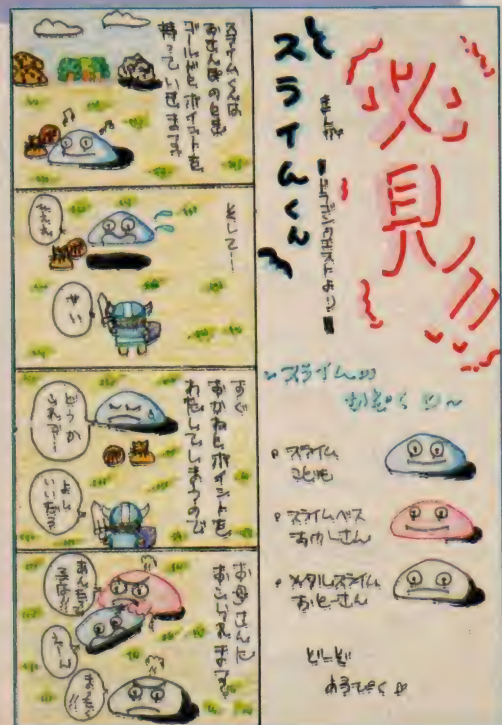 必見!!
スライムくん
まんが
ドラゴンクエストより
〜スライムの
かぞく〜
スライム
こども
スライムベス
おかーさん
メタルスライム
おとーさん
スライムくんは
おさんぽのとき
ゴールドとポイントを
持っていきます。
そして…
せい
すぐ
おかねとポイントを
わたしてしまうので
どうか
これで…
よし
いいだろ
お母さんに
おこられます。
あんたって
子は!!
えーん
まったく!!